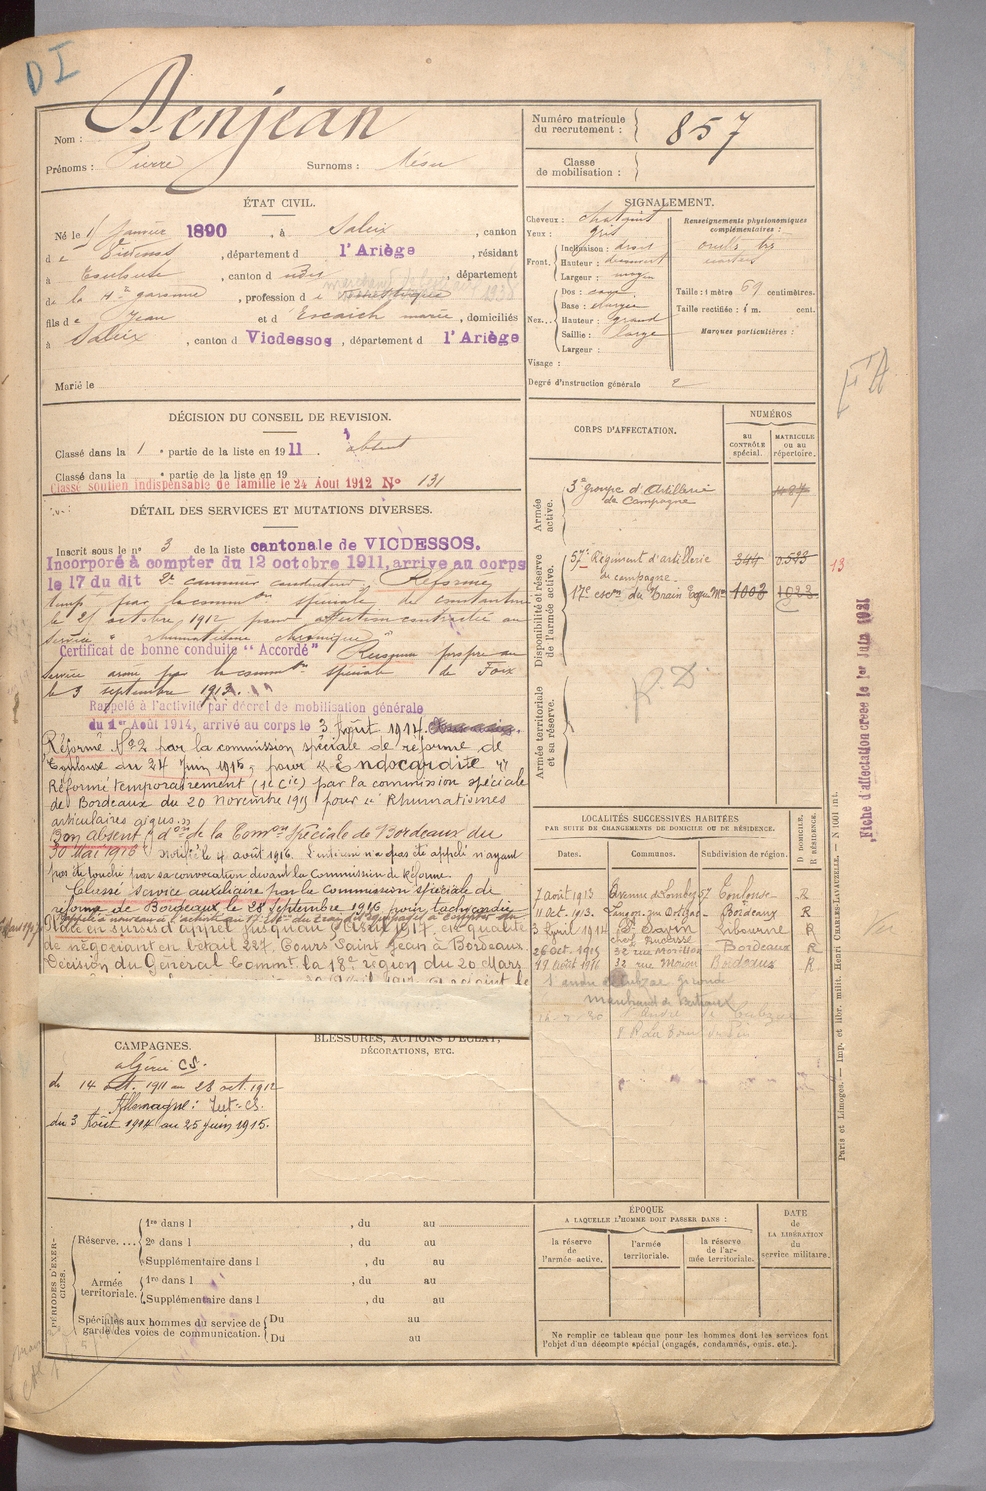 DI
Nom : Denjean
Prénoms : Pierre Surnoms :
Numéro matricule du recrutement : 857
Classe de mobilisation :
ÉTAT CIVIL.
Né le 1 Janvier 1890, à Saleix, canton
de Vicdessos, département d l'Ariège, résidant
à Toulouse, canton d, département
de la Hte garonne, profession d
fils d e Jean et d Escaich marie, domiciliés
à Saleix, canton d Vicdessos, département d l'Ariège
Marié le
SIGNALEMENT.
Cheveux : chatains
Yeux : gris
Front. Inclinaison : droit
Hauteur : découvert
Largeur : moyen
Nez... Dos : cave
Base :
Hauteur : Grand
Saillie : large
Largeur :
Visage :
Degré d'instruction générale 2
Renseignements physionomiques complémentaires :
Taille : 1 mètre 69 centimètres.
Taille rectifiée : 1 m. cent.
Marques particulières :
DÉCISION DU CONSEIL DE REVISION.
Classé dans la 1 e partie de la liste en 1911. absent
Classé dans la e partie de la liste en 19
Classé soutien indispensable de famille le 24 Aout 1912 No 131
DÉTAIL DES SERVICES ET MUTATIONS DIVERSES.
Inscrit sous le no 3 de la liste cantonale de VICDESSOS.
Incorporé à compter du 12 octobre 1911, arrivé au corps
le 17 du dit 2e canonnier conducteur. Réformé
temp. par la common spéciale de Constantine
le 21 octobre 1912 pour affection contractée au
service "rhumatisme chronique"
Certificat de bonne conduite "Accordé" Reconnu propre au
service armé par la common spéciale de Foix
le 3 septembre 1913.
Rappelé à l'activité par décret de mobilisation générale
du 1er Août 1914, arrivé au corps le 3 Août 1914.
Réformé No 2 par la commission spéciale de réforme de
Toulouse du 24 Juin 1915, pour « Endocardite »
Réformé temporairement (1e Cie) par la commission spéciale
de Bordeaux du 20 novembre 1915 pour « Rhumatismes
articulaires aigus. »
Bon absent don de la Comon Spéciale de Bordeaux du
30 Mai 1916. Notifié le 4 août 1916. L'intéressé n'a pas été appelé n'ayant
pas été touché par sa convocation devant la Commission de Réforme.
Classé service auxiliaire par la Commission spéciale de
réforme de Bordeaux le 28 septembre 1916 pour tachycardie
en sursis d'appel jusqu'au 1917, en qualité
de négociant en bétail 227, Cours Saint Jean à Bordeaux.
Décision du Général Commt. la 18e région du 20 Mars
CORPS D'AFFECTATION.
NUMÉROS
AU CONTRÔLE spécial.
MATRICULE OU AU répertoire.
Armée active.
3e groupe d'Artillerie de Campagne
Disponibilité et réserve de l'armée active.
57e Régiment d'artillerie de campagne. 344 0583 13
17e escon du Train Equ. Mre 1003 1023
Armée territoriale et sa réserve.
R.D.
Fiche d'affectation créée le 1er Juin 1921
LOCALITÉS SUCCESSIVES HABITÉES
PAR SUITE DE CHANGEMENTS DE DOMICILE OU DE RÉSIDENCE.
Dates. Communes. Subdivision de région. D. DOMICILE. R. RÉSIDENCE.
7 août 1913 Avenue de Lombez 57 Toulouse R
11 Oct. 1913. Langon Bordeaux R
3 Avril 1914 St Savin Libourne R
26 oct. 1915 32 rue Bordeaux R
Août 1916 32 rue Bordeaux R
Gironde
CAMPAGNES.
algérie CS.
du 14 oct. 1911 au 23 oct. 1912
Allemagne : Int. CS.
du 3 Août 1914 au 25 juin 1915.
BLESSURES, ACTIONS D'ÉCLAT, DÉCORATIONS, ETC.
PÉRIODES D'EXERCICES.
Réserve.... 1re dans l , du au
2e dans l , du au
Supplémentaire dans l , du au
Armée territoriale. 1re dans l , du au
Supplémentaire dans l , du au
Spéciales aux hommes du service de garde des voies de communication. Du au
Du au
ÉPOQUE
A LAQUELLE L'HOMME DOIT PASSER DANS :
la réserve de l'armée active.
l'armée territoriale.
la réserve de l'armée territoriale.
DATE de LA LIBÉRATION du service militaire.
Ne remplir ce tableau que pour les hommes dont les services font
l'objet d'un décompte spécial (engagés, condamnés, omis, etc.).
Paris et Limoges. — Imp. et libr. milit. Henri CHARLES-LAVAUZELLE. — N 1001 int.